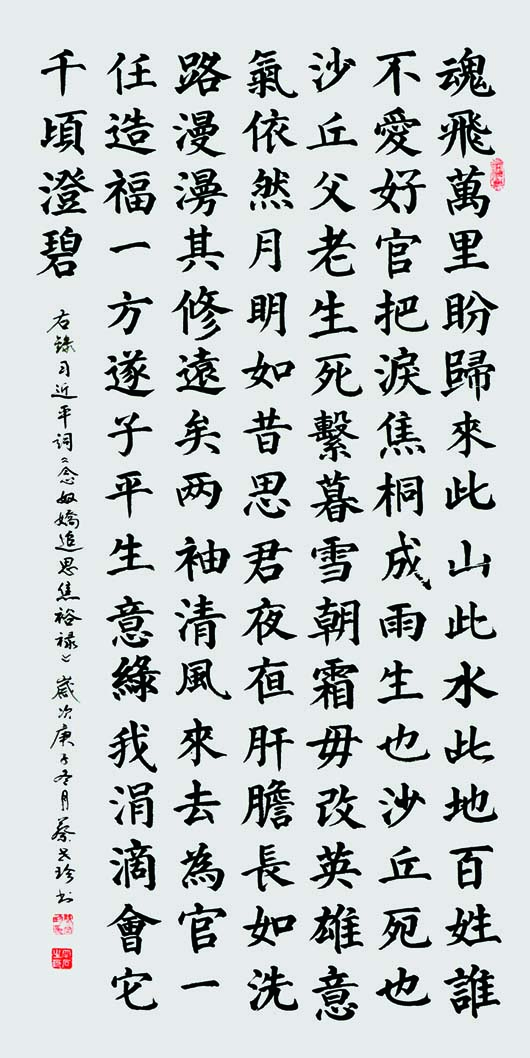 魂飛萬里盼歸來此山此水此地百姓誰
不愛好官把淚焦桐成雨生也沙丘死也
沙丘父老生死繫暮雪朝霜毋改英雄意
氣依然月明如昔思君夜亱肝膽長如洗
路漫漫其修遠矣两袖清風來去為官一
任造福一方遂子平生意綠我涓滴會它
千頃澄碧
右錄习近平词《念奴嬌追思焦裕禄》歲次庚子冬月蔡 珍书